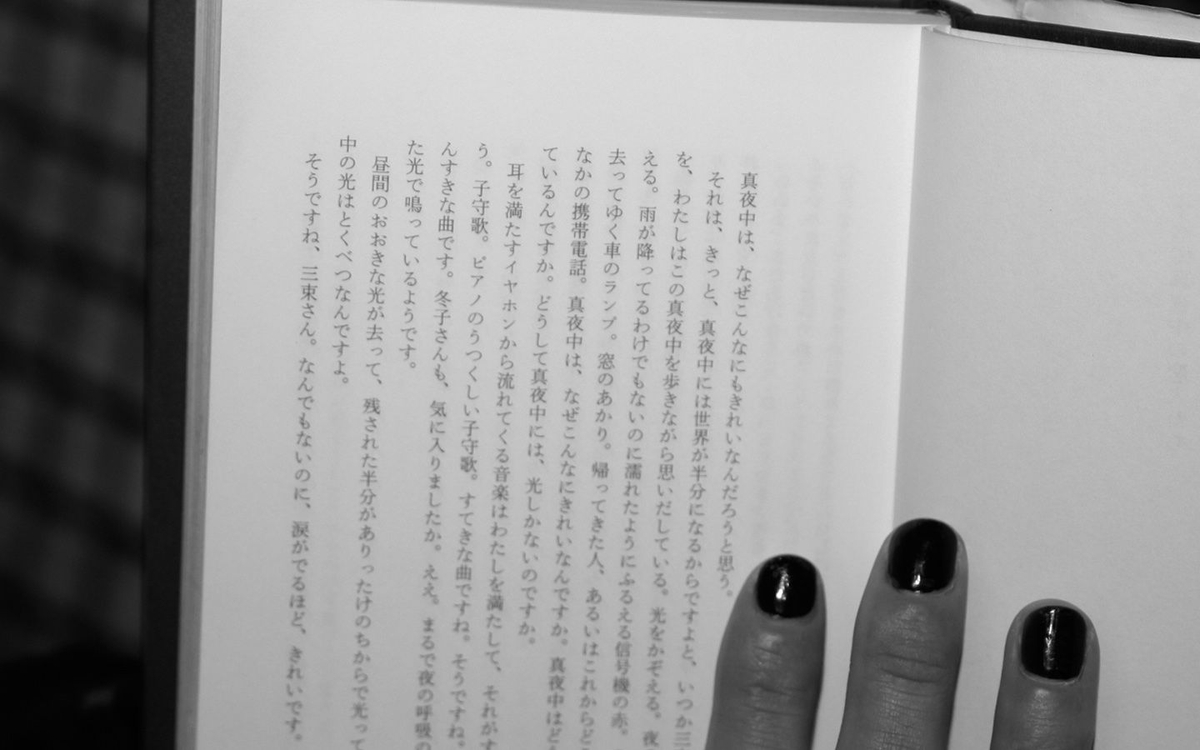 真夜中は、なぜこんなにもきれいなんだろうと思う。
それは、きっと、真夜中には世界が半分になるからですよと、いつか三
を、わたしはこの真夜中を歩きながら思いだしている。光をかぞえる。夜
える。雨が降ってるわけでもないのに濡れたようにふるえる信号機の赤。
去ってゆく車のランプ。窓のあかり。帰ってきた人、あるいはこれからど
なかの携帯電話。真夜中は、なぜこんなにきれいなんですか。真夜中はど
ているんですか。どうして真夜中には、光しかないのですか。
耳を満たすイヤホンから流れてくる音楽はわたしを満たして、それがす
う。子守歌。ピアノのうつくしい子守歌。すてきな曲ですね。そうですね。
んすきな曲です。冬子さんも、気に入りましたか。ええ。まるで夜の呼吸の
た光で鳴っているようです。
昼間のおおきな光が去って、残された半分がありったけのちからで光って
中の光はとくべつなんですよ。
そうですね、三束さん。なんでもないのに、涙がでるほど、きれいです。